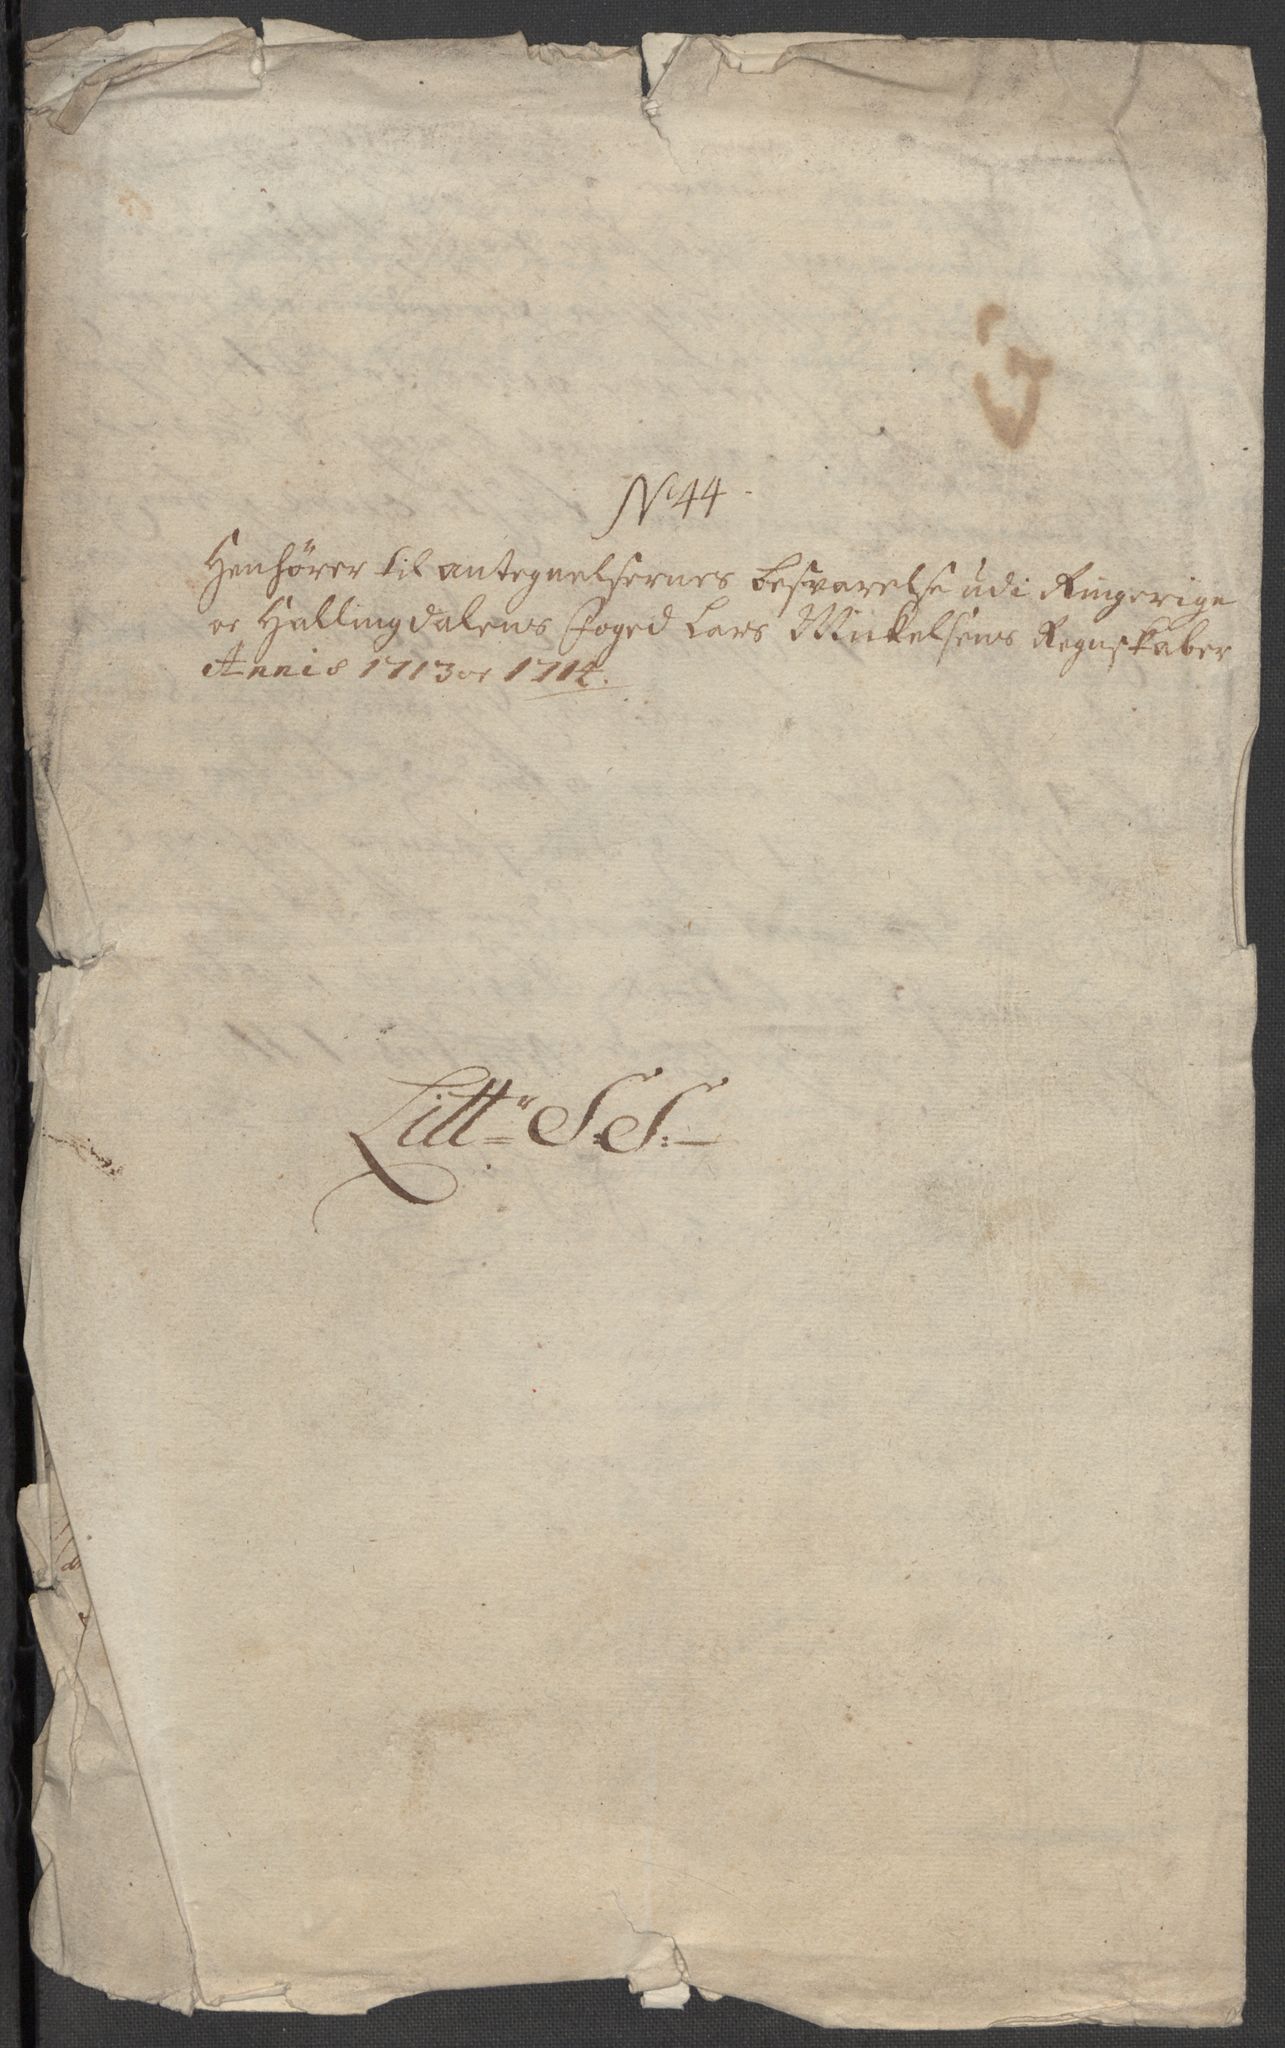 No 44.
Henhører til antegnelsernes besvarelse udi Ringerige
oc Hallingdalens Foged Lars Mickelsens Regnskaber
Annis 1713 oc 1714.
Litt:r S:S: